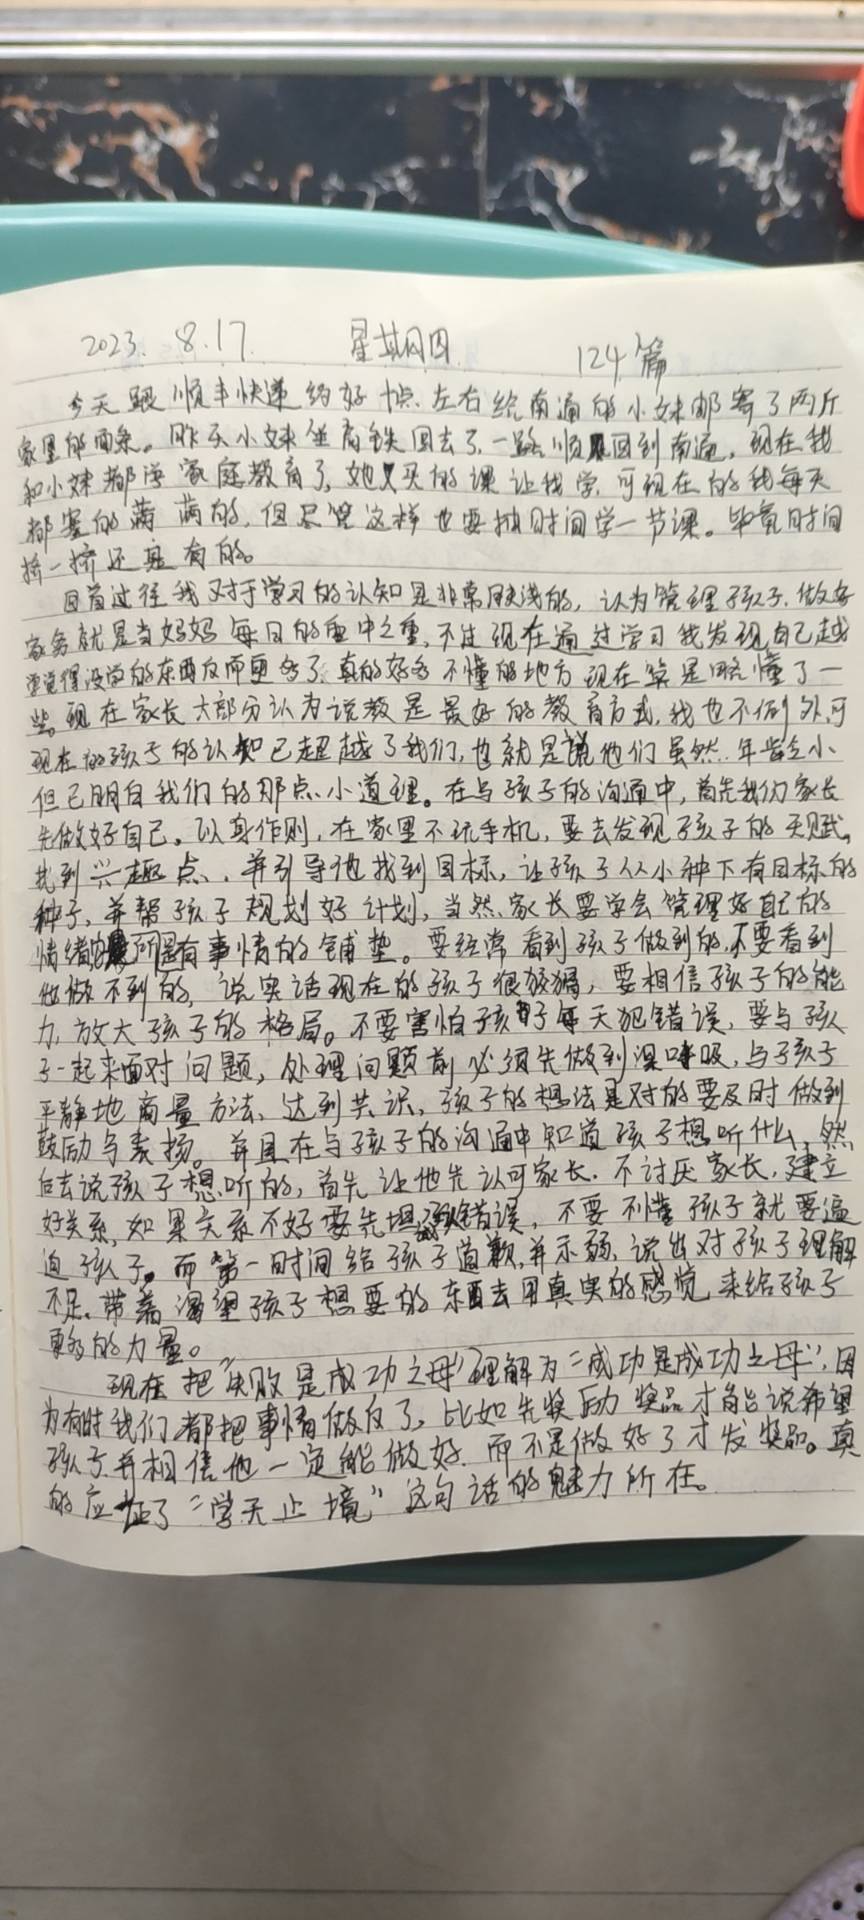 2023. 8.17. 星期四 124篇
今天跟顺丰快递约好十点左右给南通的小妹邮寄了两斤
家里的面条。昨天小妹坐高铁回去了,一路顺风回到南通,现在我
和小妹都学家庭教育了,她买的课让我学,可现在的我每天
都塞的满满的,但尽管这样也要抽时间学一节课。毕竟时间
挤一挤还是有的。
回首过往我对于学习的认知是非常肤浅的,认为管理孩子、做好
家务就是当妈妈每日的重中之重,不过现在通过学习我发现自己越
学觉得没学的东西反而更多了、真的好多不懂的地方现在算是略懂了一
些。现在家长大部分认为说教是最好的教育方式,我也不例外,可
现在的孩子的认知已超越了我们,也就是说他们虽然年龄小
但已明白我们的那点小道理。在与孩子的沟通中,首先我们家长
先做好自己。以身作则,在家里不玩手机,要去发现孩子的天赋。
找到兴趣点、并引导他找到目标,让孩子从小种下有目标的
种子,并帮孩子规划好计划,当然家长要学会管理好自己的
情绪是所有事情的铺垫。要经常看到孩子做到的,不要看到
他做不到的,说实话现在的孩子很狡猾,要相信孩子的能
力,放大孩子的格局。不要害怕孩子每天犯错误,要与孩
子一起来面对问题,处理问题前必须先做到深呼吸,与孩子
平静地商量方法、达到共识、孩子的想法是对的要及时做到
鼓励与表扬。并且在与孩子的沟通中知道孩子想听什么,然
后去说孩子想听的,首先让他先认可家长.不讨厌家长,建立
好关系,如果关系不好要先坦诚错误,不要不懂孩子就要逼
迫孩子。而第一时间给孩子道歉,并示弱、说出对孩子理解
不足、带着渴望孩子想要的东西去用真实的感觉来给孩子
更多的力量。
现在把“失败是成功之母”理解为“成功是成功之母”,因
为有时我们都把事情做反了,比如先奖励奖品才能说希望
孩子并相信他一定能做好,而不是做好了才发奖品。真
的应证了“学无止境”这句话的魅力所在。